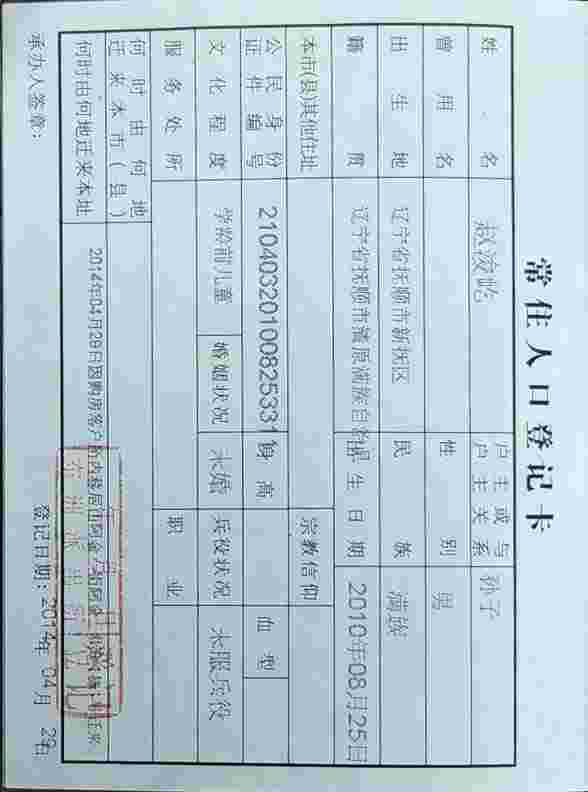 常住人口登记卡
姓 名 赵凌屹 户主或与户主关系 孙子
曾用名 性别 男
出生地 辽宁省抚顺市新抚区 民族 满族
籍贯 辽宁省抚顺市清原满族自治县 出生日期 2010年08月25日
本市(县)其他住址 宗教信仰
公民身份证件编号 210403201008253311 身高 血型
文化程度 学龄前儿童 婚姻状况 未婚 兵役状况 未服兵役
服务处所 职业
何时由何地迁来本市(县)
何时由何地迁来本址 2014年04月29日因购房落户
承办人签章: 登记日期: 2014年 04月 29日